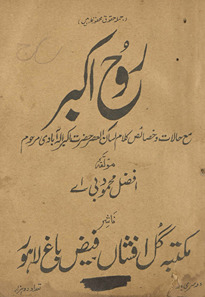 (جملہ حقوق محفوظ ہیں)
روح اکبر
مع حالات و خصائص کلام لسان العصر حضرت اکبر الہ آبادی مرحوم
مولفہ
افضل محمود بی اے
ناشر
مکتبہ گل افشاں فیض باغ لاہور
تعداد دو ہزار